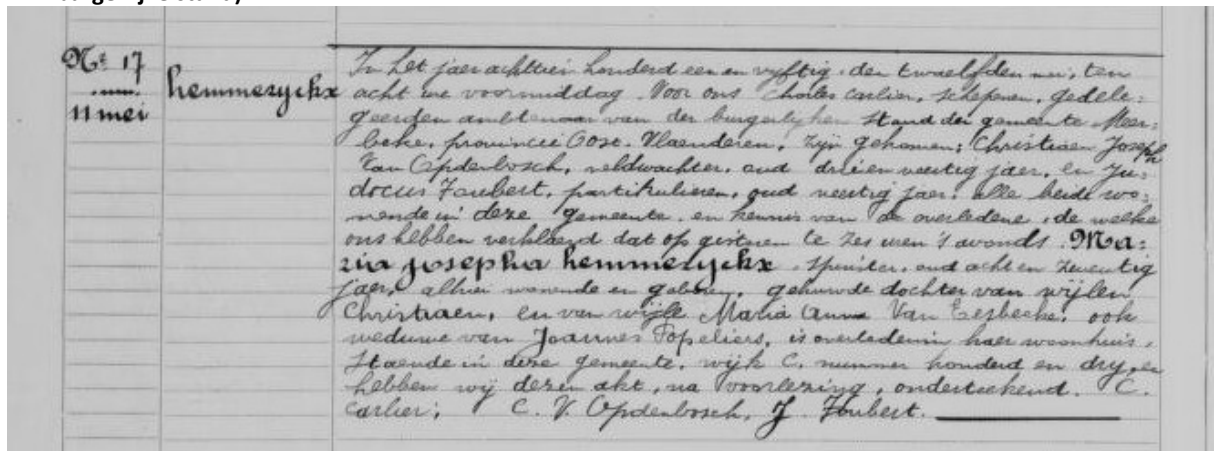 Nr 17
11 mei
hemmeryckx
In het jaer achttien honderd een en vyftig, den twaelfden mei, ten
acht ure voormiddag. Voor ons Charles Carlier, schepenen, gedele=
geerden ambtenaar van den burgerlyken stand der gemeente Meer=
beke, provincie Oost-Vlaenderen, zyn gekomen: Christiaen Joseph
Van Opdenbosch, veldwachter, oud drie en veertig jaer, en Ju=
docus Foubert, partikulieren, oud veertig jaer, alle beide wo=
nende in deze gemeente, en kennis van de overledene, de welke
ons hebben verklaerd dat op gisteren te zes uren 's avonds Ma=
ria josepha hemmeryckx, spinster, oud acht en zeventig
jaer, alhier wonende en geboren, gehuwde dochter van wijlen
Christiaen, en van wijle Maria Anna Van Eesbeeke, ook
weduwe van Joannes Popeliers, is overleden in haer woonhuis,
staende in deze gemeente, wijk C, nummer honderd en dry, en
hebben wij dezen akt, na voorlezing, onderteekend. C.
Carlier; C. V. Opdenbosch, J. Foubert.